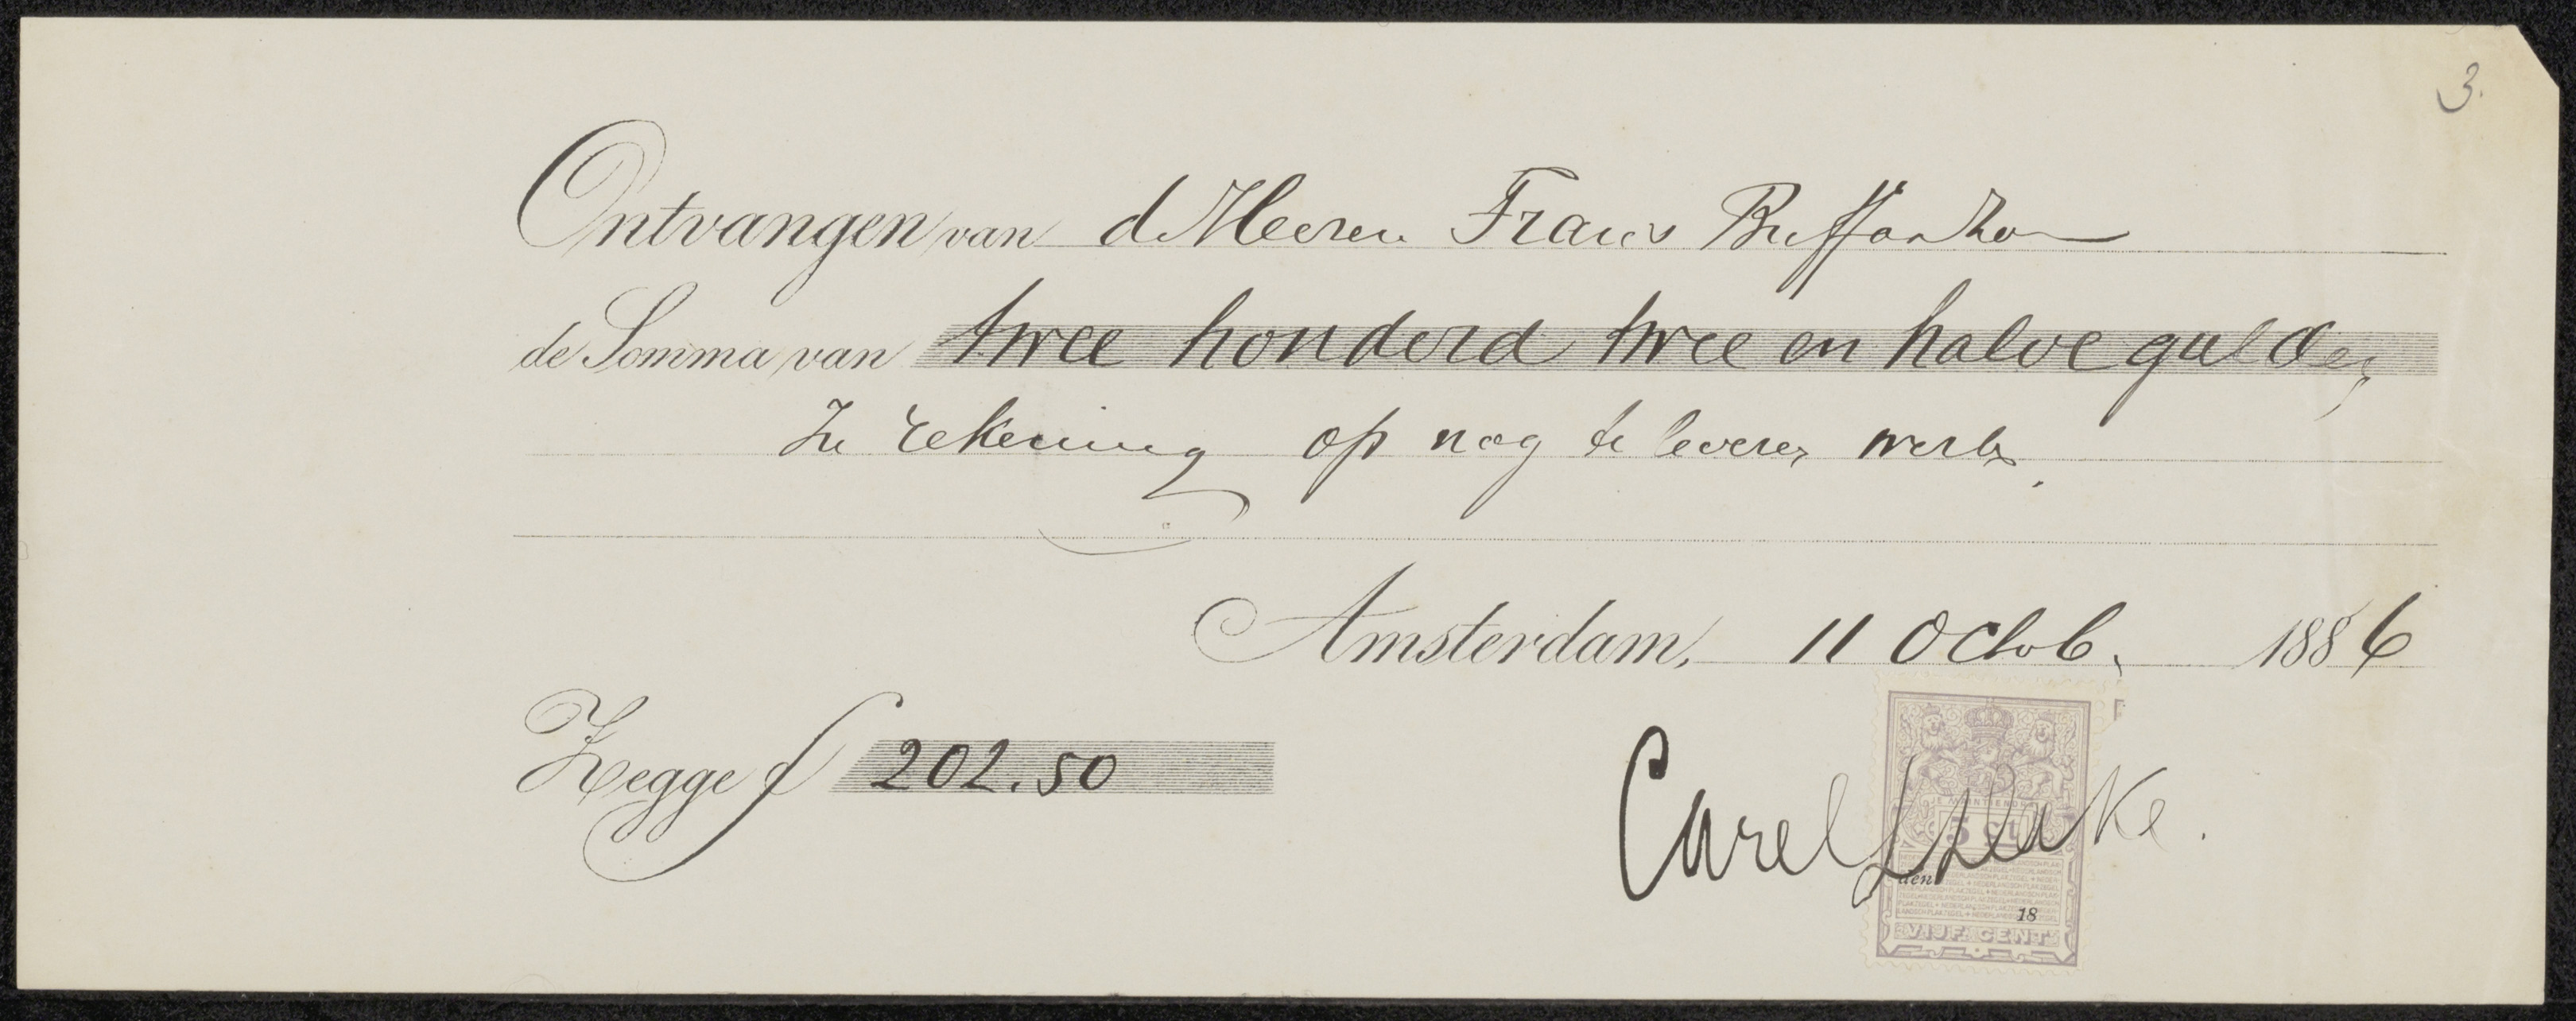 3.
Ontvangen van d Heeren Frans Buffa & Zn
de Somma van twee honderd twee en halve gulden
In rekening op nog te leveren werk.
Amsterdam, 11 Octob. 1886
Zegge f 202.50
Carel L Dake.
JE MAINTIENDRAI
5 CT
den
18
VIJF CENT